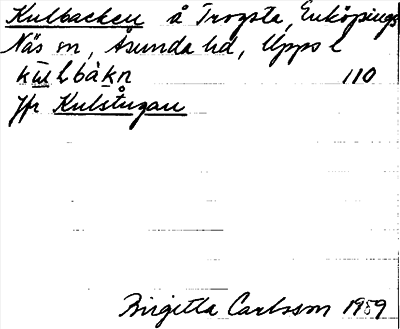 Kulbacken å Trogsta, Enköpings
Näs sn, Åsunda hd, Upps l
kulbàkn 110
Jfr Kulstugan
Birgitta Carlsson 1959